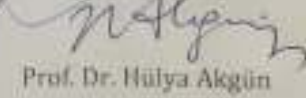 Prof. Dr. Hülya Akgün